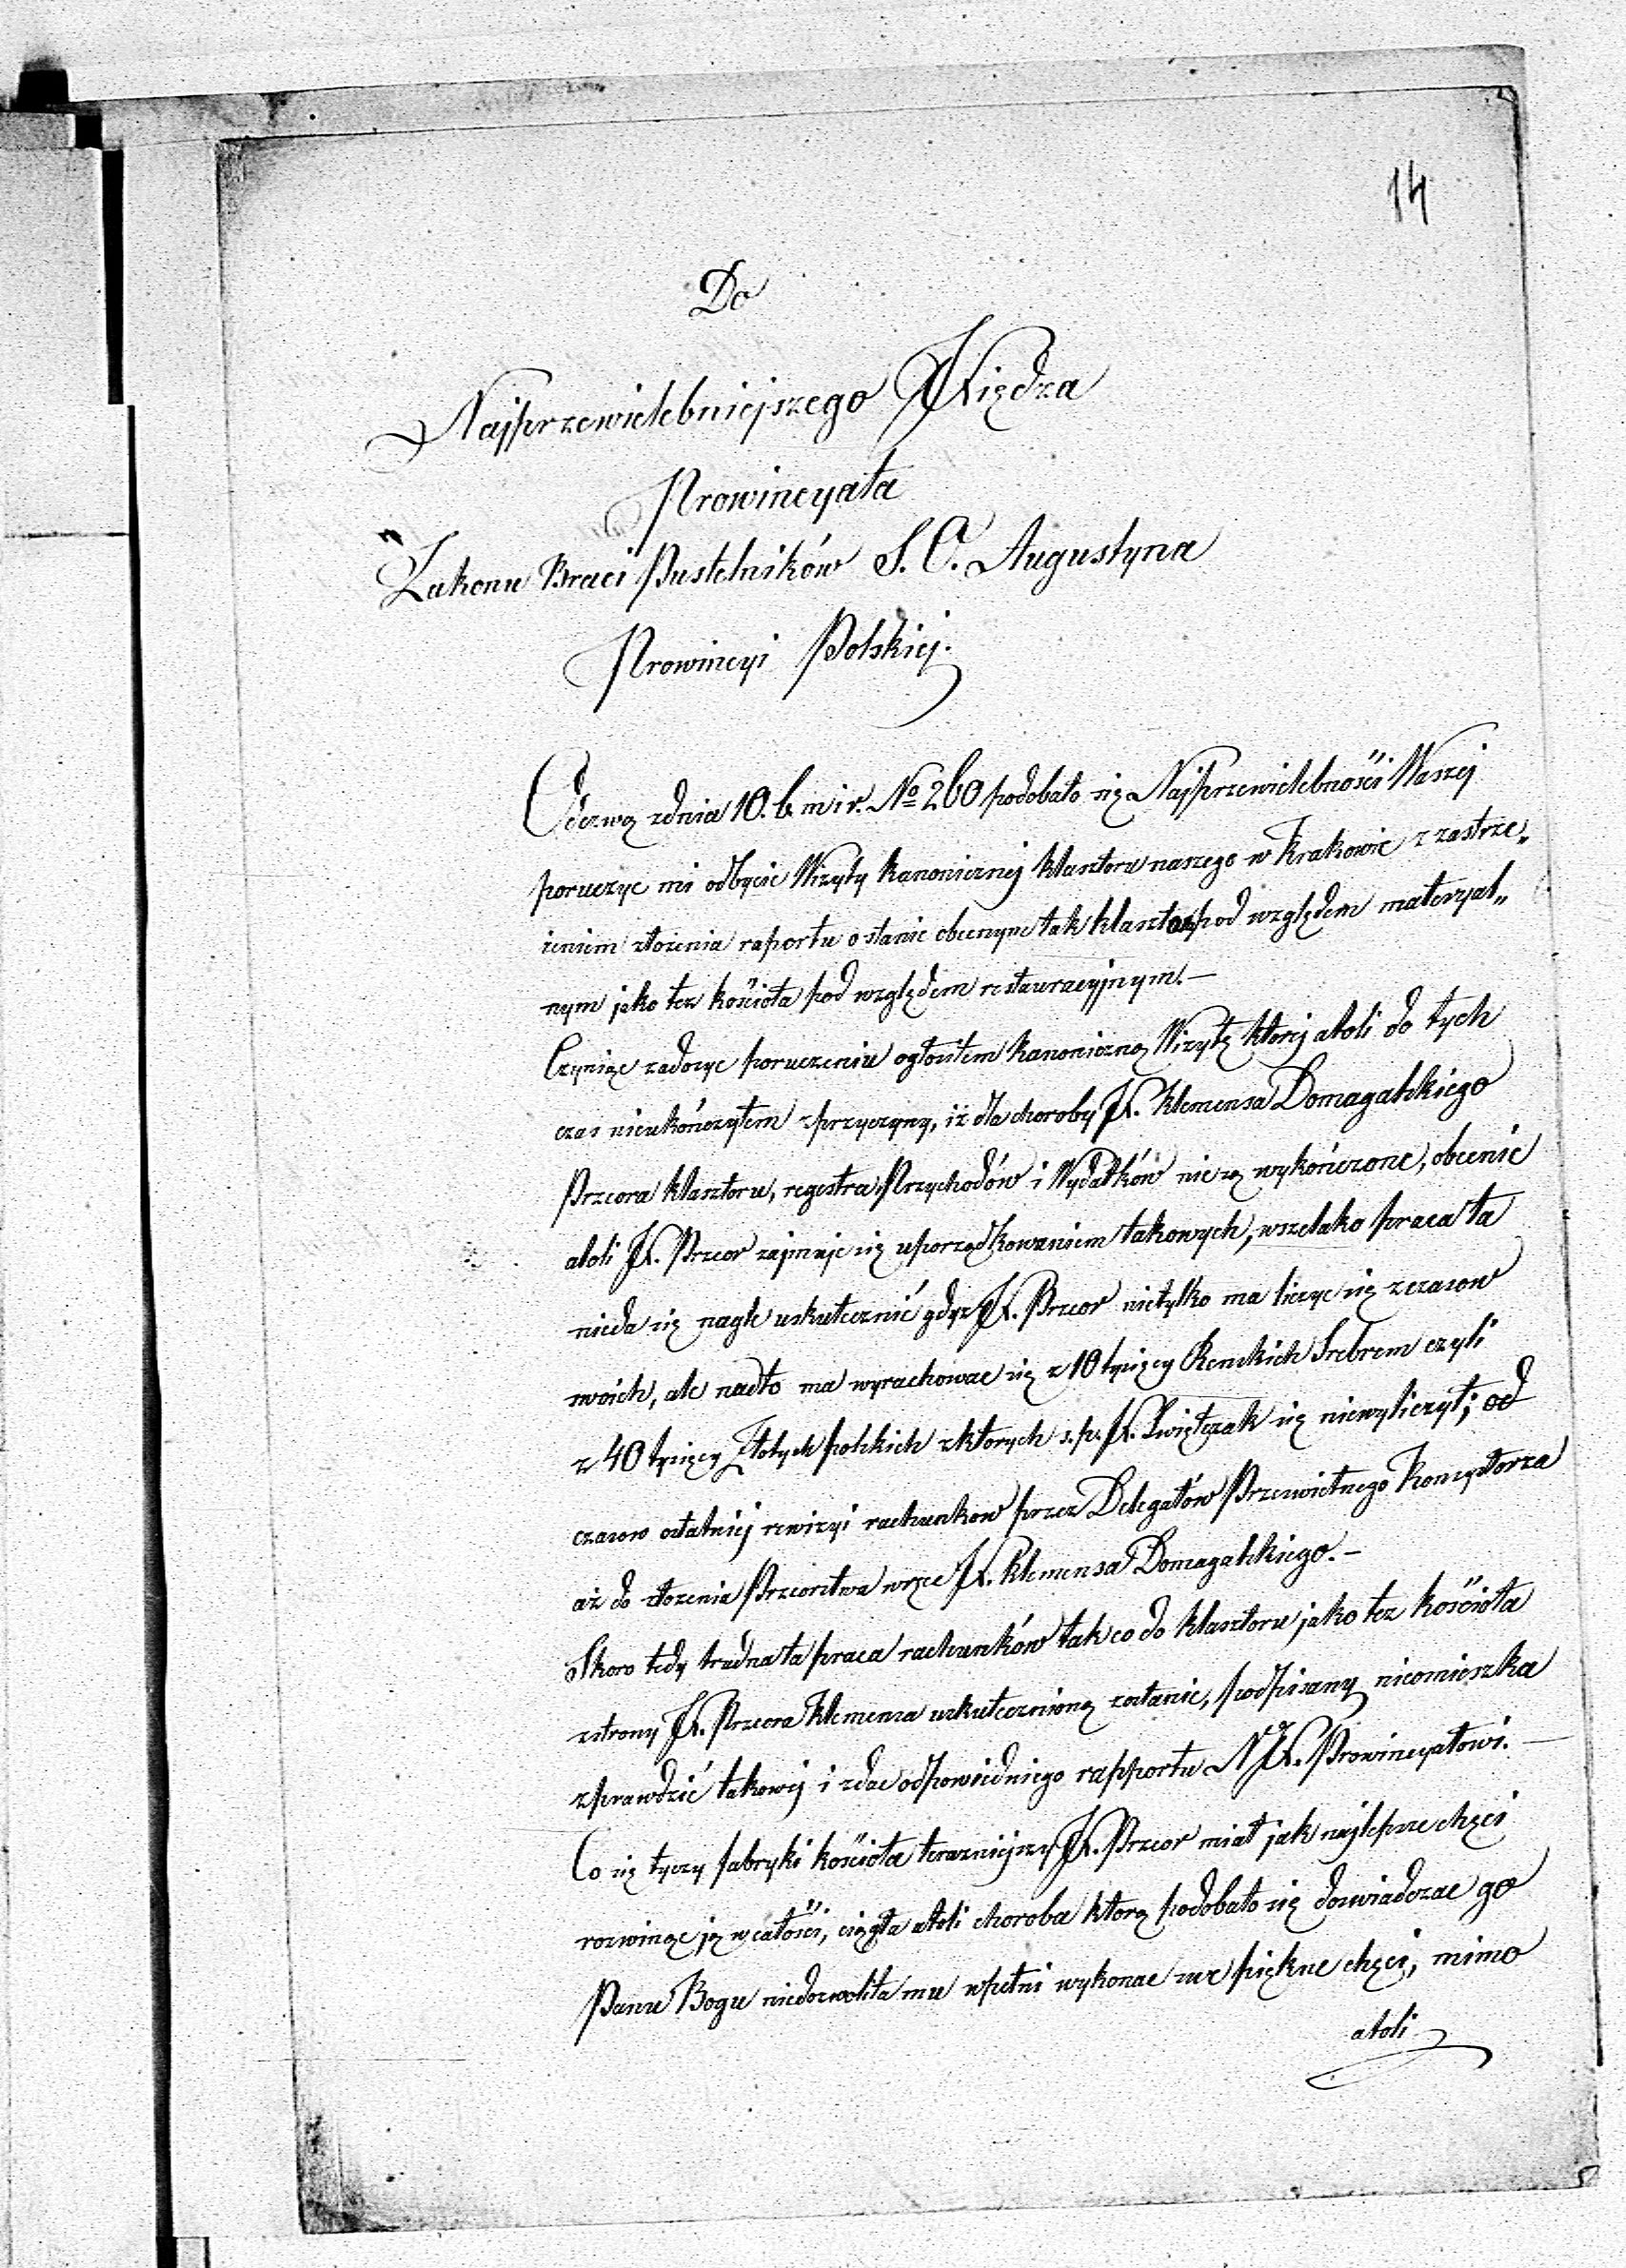 14
Do
Najprzewielebniejszego Xiędza
Prowincyała
Zakonu Braci Pustelników S. O. Augustyna
Prowincyi Polskiej.
Odezwą zdnia 10. b. m i r. No 260 podobało się Najprzewielebności Waszej
poruczyc mi odbycie Wizyty kanonicznej klasztoru naszego w Krakowie z zastrze„
żeniem złożenia raportu o stanie obecnym tak klasztoru pod względem materyal„
nym jako tez kościoła pod względem restauracyjnym.—
Czyniąc zadosyc poruczeniu ogłosiłem kanoniczną Wizytę ktorej atoli do tych
czas nieukończyłem zprzyczyny, iż dla choroby X. Klemensa Domagalskiego
Przeora klasztoru, regestra Przychodów i Wydatków nie są wykończone, obecnie
atoli X. Przeor zajmuje się uporządkowaniem takowych, wszelako praca ta
nieda się nagle uskutecznić gdyż X. Przeor nietylko ma liczyc się zczasow
swoich, ale nadto ma wyrachowac się z 10 tysięcy Renskich Srebrem czyli
z 40 tysięcy Złotych polskich zktorych s. p. X. Świętczak się niewyliczył; od
czasow ostatniej rewizyi rachunkow przez Delegatów Przeswietnego Konsystorza
aż do złozenia Przeorstwa wręce X. Klemensa Domagalskiego.—
Skoro tedy trudna ta praca rachunków tak co do klasztoru jako tez kościoła
zstrony X. Przeora Klemensa uskutecznioną zostanie, podpisany nieomieszka
zprawdzić takowej i zdac odpowiedniego rapportu N X. Prowincyałowi.—
Co się tyczy fabryki kościoła terazniejszy X. Przeor miał jak najlepsze chęci
rozwinąc ją w całości, ciągła atoli choroba ktorą podobało się doswiadczac go
Panu Bogu niedozwoliła mu wpełni wykonac swe piękne chęci, mimo
atoli